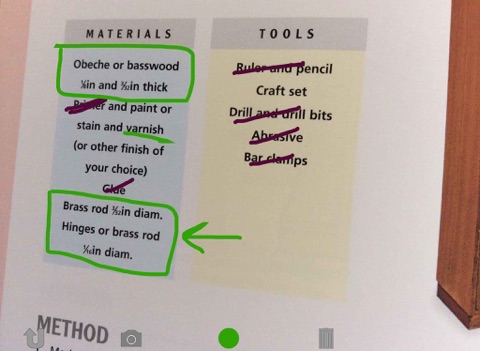 MATERIALS
Obeche or basswood
⅛in and 3/32in thick
Primer and paint or
stain and varnish
(or other finish of
your choice)
Glue
Brass rod 1/32in diam.
Hinges or brass rod
1/16in diam.
TOOLS
Ruler and pencil
Craft set
Drill and drill bits
Abrasive
Bar clamps
METHOD